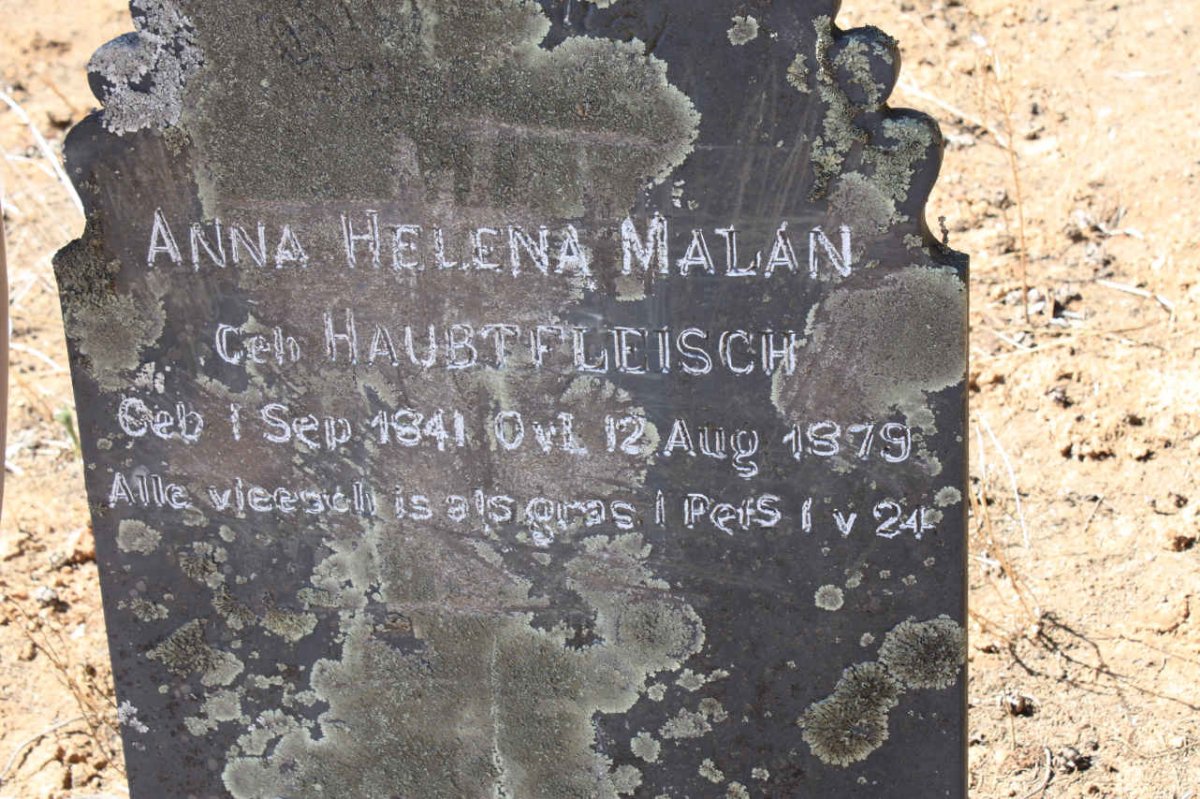 ANNA HELENA MALAN
Geb HAUBTFLEISCH
Geb 1 Sep 1841 Ovl 12 Aug 1879
Alle vleesch is als gras 1 Pets 1 v 24